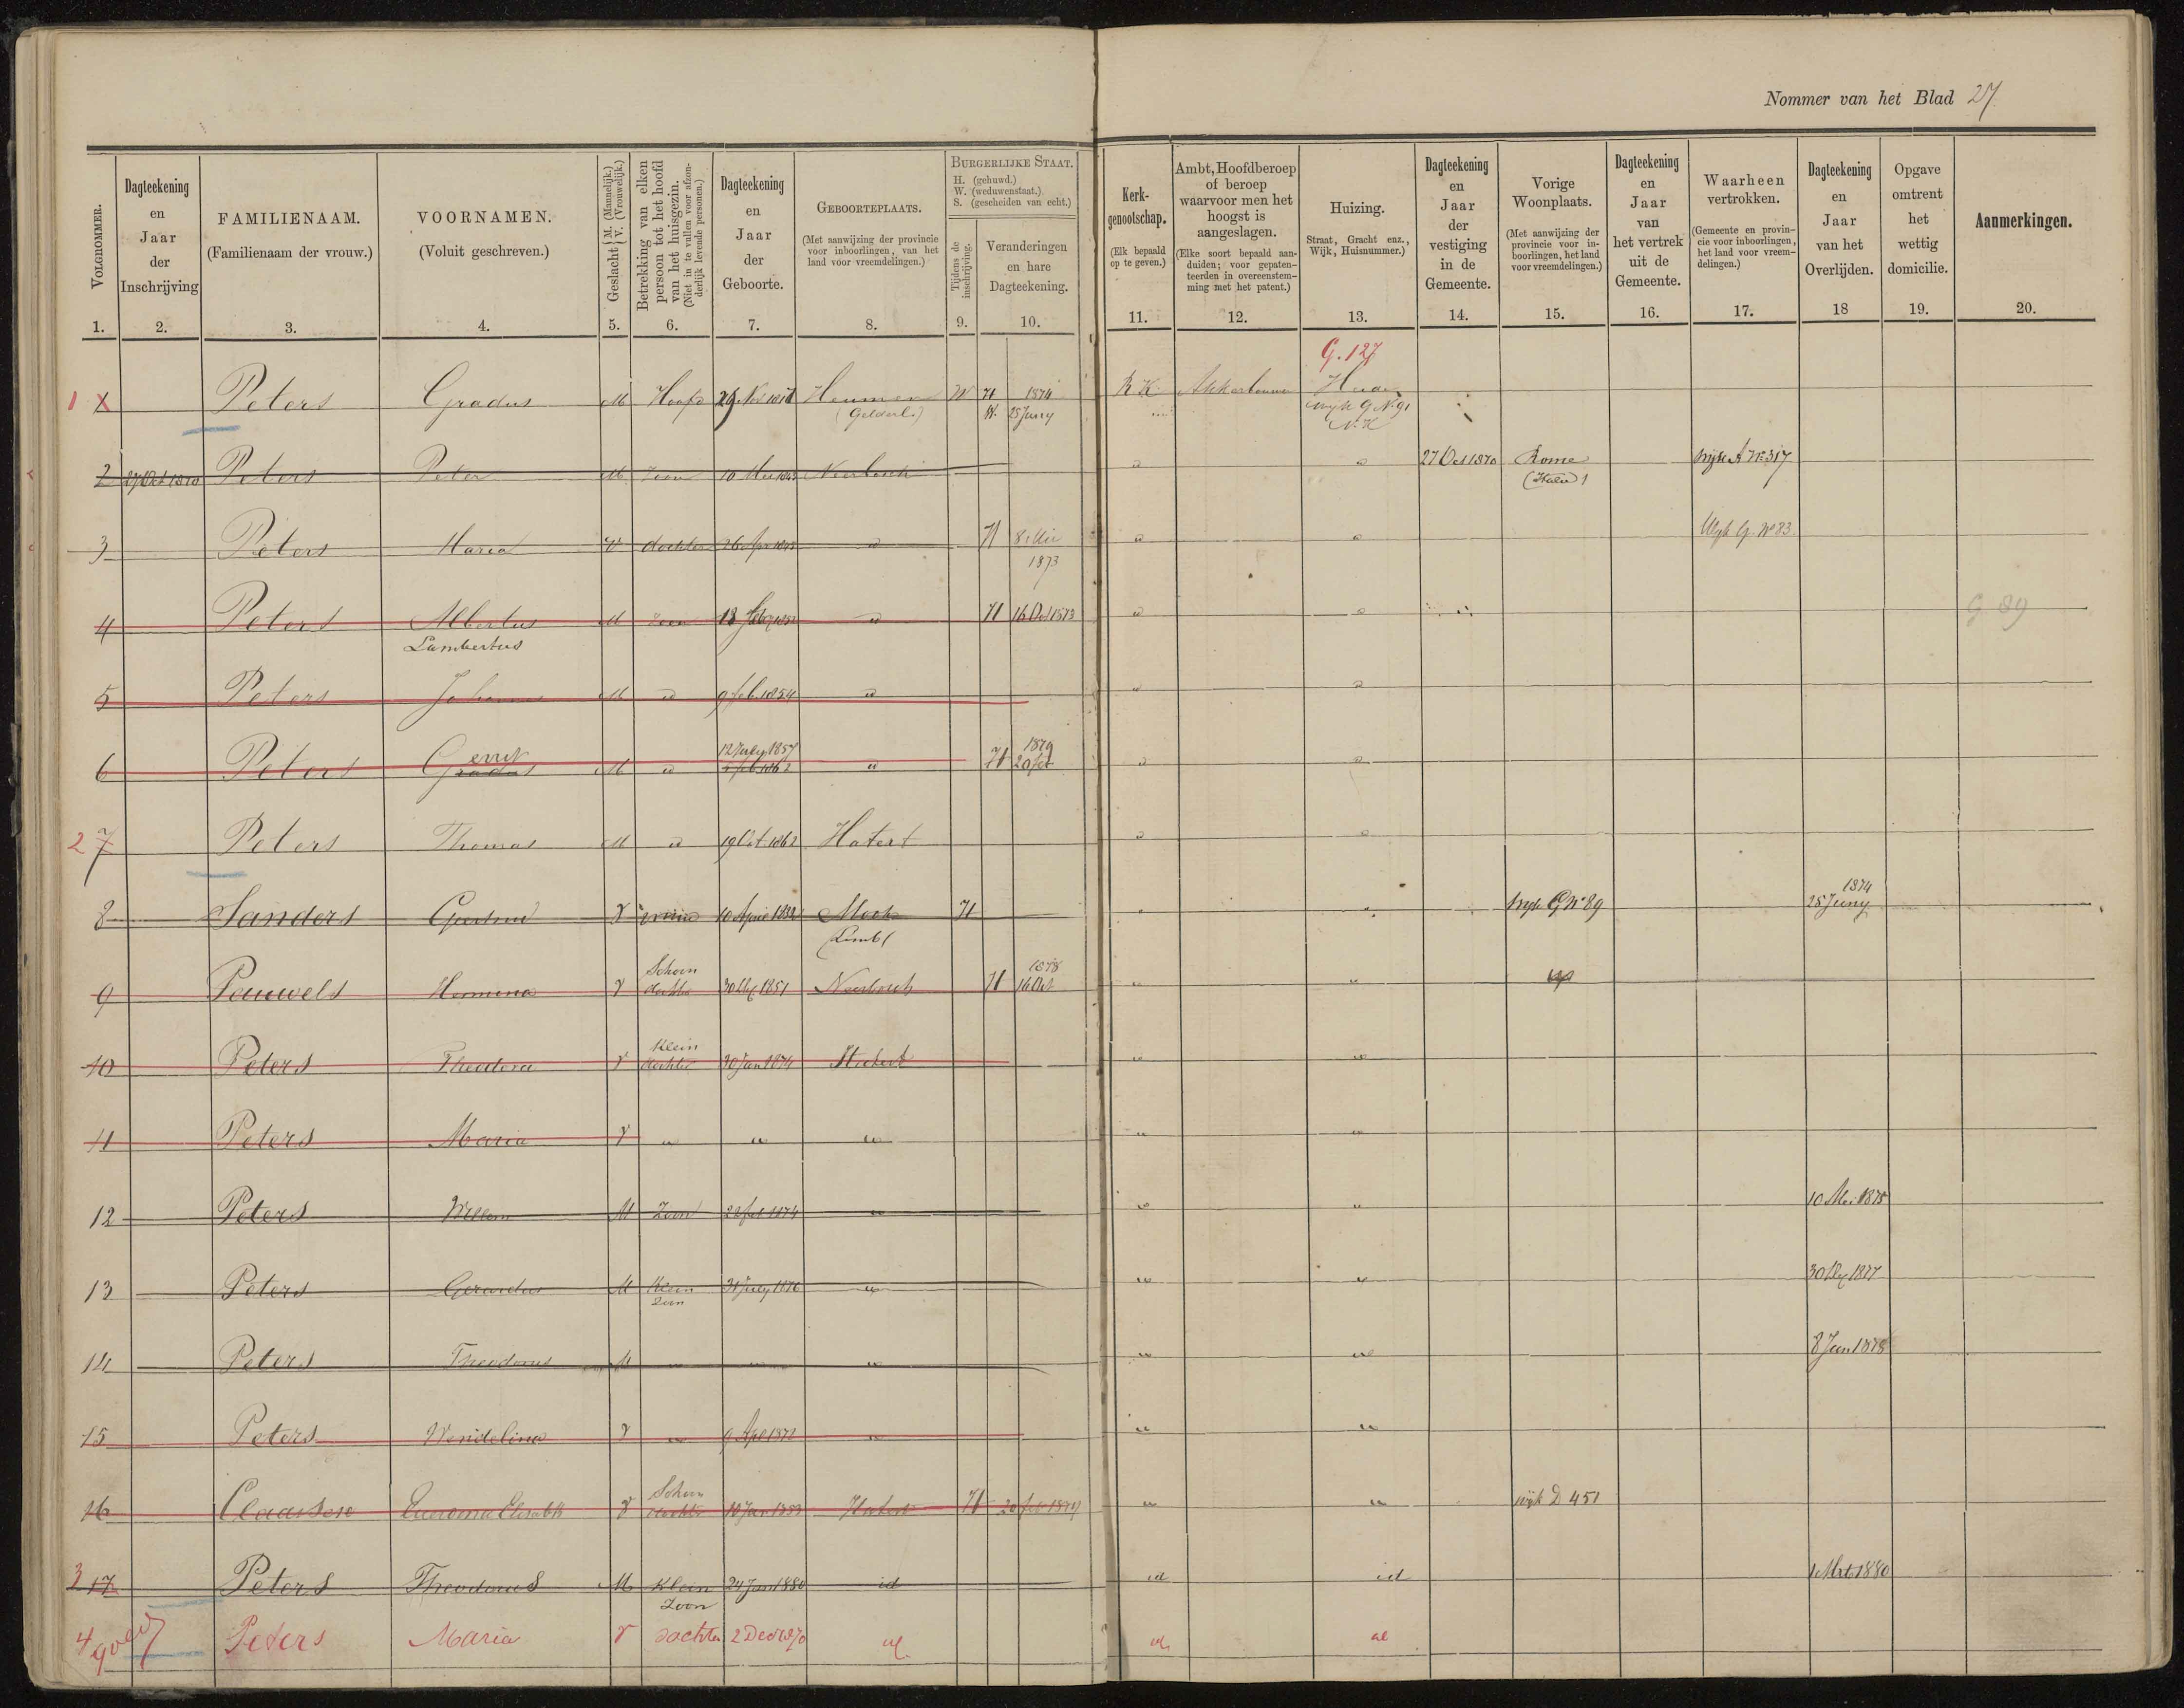 Nommer van het Blad 27
VOLGNOMMER.
1.
Dagteekening
en
Jaar
der
Inschrijving
2.
FAMILIENAAM.
(Familienaam der vrouw.)
3.
VOORNAMEN.
(Voluit geschreven.)
4.
Geslacht { M. (Mannelijk.) V. (Vrouwelijk.)
5.
Betrekking van elken
persoon tot het hoofd
van het huisgezin.
(Niet in te vullen voor afzon-
derlijk levende personen.)
6.
Dagteekening
en
Jaar
der
Geboorte.
7.
GEBOORTEPLAATS.
(Met aanwijzing der provincie
voor inboorlingen, van het
land voor vreemdelingen.)
8.
BURGERLIJKE STAAT.
H. (gehuwd.)
W. (weduwenstaat.)
S. (gescheiden van echt.)
Tijdens de
inschrijving.
9.
Veranderingen
en hare
Dagteekening.
10.
Kerk-
genootschap.
(Elk bepaald
op te geven.)
11.
Ambt, Hoofdberoep
of beroep
waarvoor men het
hoogst is
aangeslagen.
(Elke soort bepaald aan-
duiden; voor gepaten-
teerden in overeenstem-
ming met het patent.)
12.
Huizing.
Straat, Gracht enz.,
Wijk, Huisnummer.)
13.
Dagteekening
en
Jaar
der
vestiging
in de
Gemeente.
14.
Vorige
Woonplaats.
(Met aanwijzing der
provincie voor in-
boorlingen, het land
voor vreemdelingen.)
15.
Dagteekening
en
Jaar
van
het vertrek
uit de
Gemeente.
16.
Waarheen
vertrokken.
(Gemeente en provin-
cie voor inboorlingen,
het land voor vreem-
delingen.)
17.
Dagteekening
en
Jaar
van het
Overlijden.
18
Opgave
omtrent
het
wettig
domicilie.
19.
Aanmerkingen.
20.
G. 127
1 Peters Gradus M Hoofd Heumen W H 1874 R K Akkerbouwer
(Gelderl.) W. 25 Juny wijk G No 91
2 27 Oct 1870 Peters Peter M Zoon Neerbosch 27 Oct 1870 Rome wijk A No 317
3 Peters Maria V dochter H 8 Mei Wijk G. No 83
1873
4 Peters Albertus M Zoon H 16 Oct 1873 G 89
Lambertus
5 Peters Johannes M 9 feb. 1854
12 July 1857 1879
6 Peters M H 20 feb
2 7 Peters Thomas M 19 Oct 1862 Hatert
1874
8 Sanders Geertrud V 10 April 1832 Mook H wijk G No 89 25 Juny
(Limb)
Schoon 1873
9 Pouwels Hermina V dochter 1851 Neerbosch H 16 Oct
Klein
10 Peters Theodora V dochter 30 Jan 1874 Hatert
11 Peters Maria V
12 Peters Willem M Zoon 1874 10 Mei 1875
13 Peters Gerardus M Klein 31 July 1876 1877
Zoon
14 Peters Theodorus M 8 Jan 1878
15 Peters Wendelina V
Schoon
16 Claassen V dochter Hatert H 20 feb 1879 wijk D 451
3 17 Peters Theodorus M Klein 24 Jan 1880 id id id 1 Mrt 1880
Zoon
4 Peters Maria V dochter 2 Dec 1870